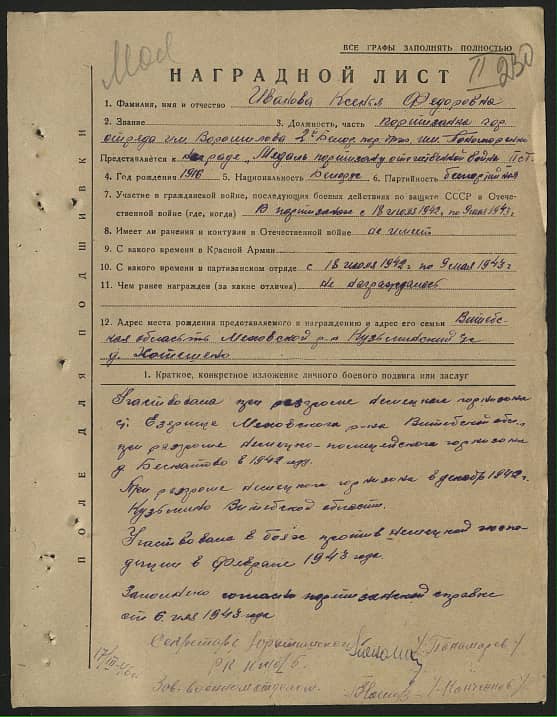 ВСЕ ГРАФЫ ЗАПОЛНЯТЬ ПОЛНОСТЬЮ
II 230
НАГРАДНОЙ ЛИСТ
1. Фамилия, имя и отчество Иванова Ксенья Федоровна
2. Звание 3. Должность, часть партизанка
отряда им. Ворошилова 2й Белор. пар.
Представляется к награде „Медаль партизану отечественной войны II ст.
4. Год рождения 1916 5. Национальность Белорус 6. Партийность беспартийная
7. Участие в гражданской войне, последующих боевых действиях по защите СССР в Отече-
ственной войне (где, когда) В партизанах с 18 июля 1942 г. по 9 мая 1943 г
8. Имеет ли ранения и контузии в Отечественной войне не имеет
9. С какого времени в Красной Армии
10. С какого времени в партизанском отряде с 18 июля 1942 г по 9 мая 1943 г
11. Чем ранее награжден (за какие отличия) не награждалась
12. Адрес места рождения представляемого к награждению и адрес его семьи Витеб-
ская область Меховской р-н Кузьминский с/с
д.
1. Краткое, конкретное изложение личного боевого подвига или заслуг
Участвовала при разгроме немецкого гарнизона
Езерище Меховского р-на Витебской обл.,
при разгроме немецко-полицейского гарнизона
д. в 1942 году.
При разгроме немецкого гарнизона в декабре 1942 г.
Кузьмино Витебской области.
Участвовала в боях против немецкой экспе-
диции в феврале 1943 года.
Заполнено согласно партизанской справке
от 6. мая 1943 года
Секретарь /Пономарев/
РК КП(б)Б.
Зав. военным отделом.
ПОЛЕ ДЛЯ ПОДШИВКИ